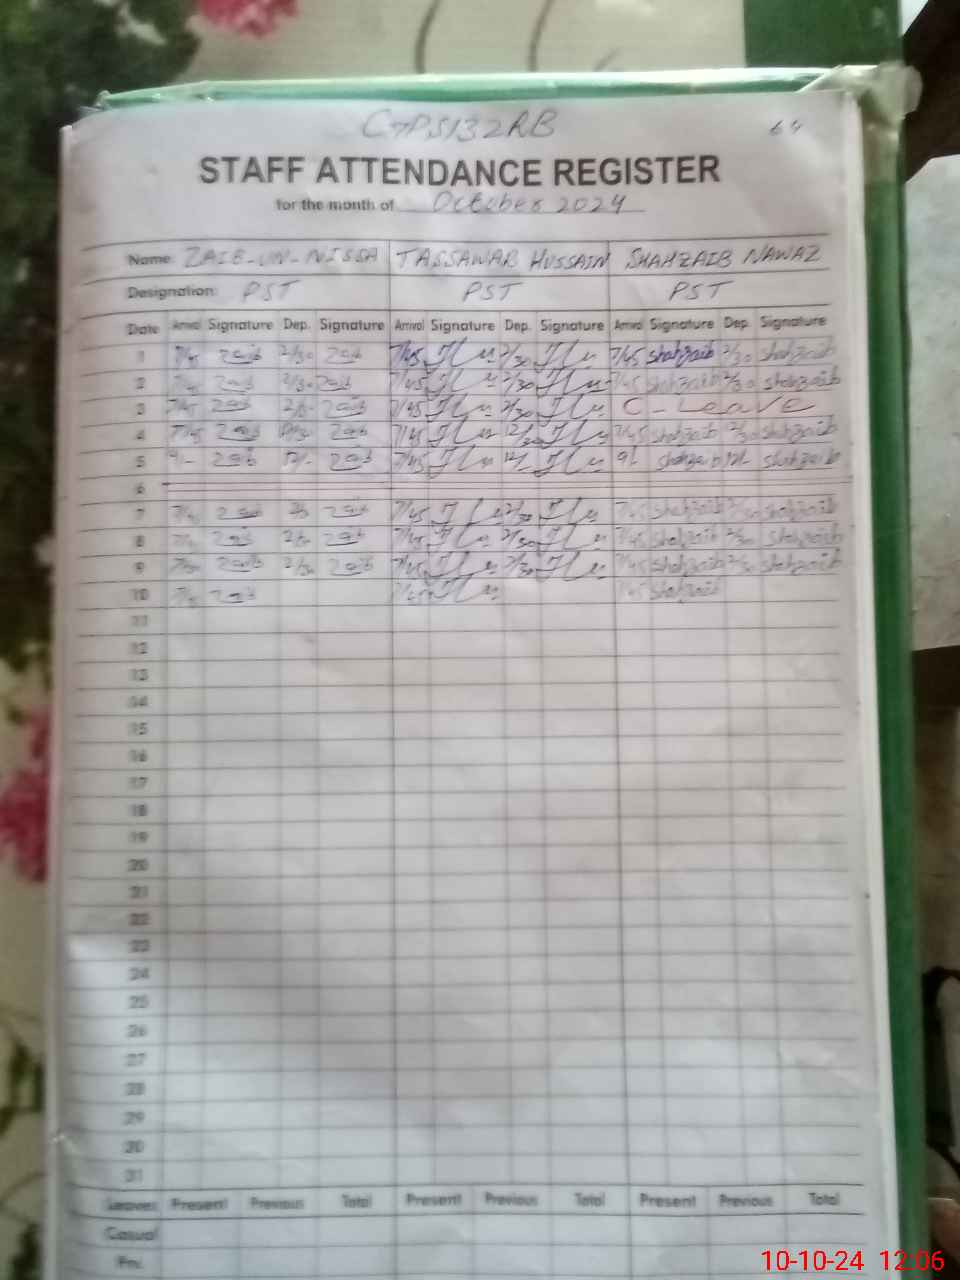 GPS132RB 64
STAFF ATTENDANCE REGISTER
for the month of October 2024
Name: ZAIB-UN-NISSA TASSAWAR HUSSAIN SHAHZAIB NAWAZ
Designation: PST PST PST
Date Arrival Signature Dep. Signature Arrival Signature Dep. Signature Arrival Signature Dep. Signature
1 7/45 Zaib 2/30 Zaib 7/45 2/30 7/45 Shahzaib 2/30 shahzaib
2 7/45 Zaib 2/30 Zaib 7/45 2/30 7/45 shahzaib 2/30 shahzaib
3 7/45 Zaib Zaib 7/45 2/30 C-Leave
4 7/45 Zaib 12/30 Zaib 7/45 12/30 7/45 shahzaib shahzaib
5 9/- Zaib 12/- Zaib 7/45 12/- 9/- shahzaib 12/- shahzaib
6
7 Zaib Zaib 7/45 2/30 7/45 shahzaib 2/30 shahzaib
8 Zaib Zaib 7/45 2/30 7/45 shahzaib 2/30 shahzaib
9 Zaib 2/30 Zaib 7/45 2/30 7/45 shahzaib 2/30 shahzaib
10 Zaib 7/45 7/45 shahzaib
11
12
13
14
15
16
17
18
19
20
21
22
23
24
25
26
27
28
29
30
31
Leaves Present Previous Total Present Previous Total Present Previous Total
Casual
10-10-24 12:06